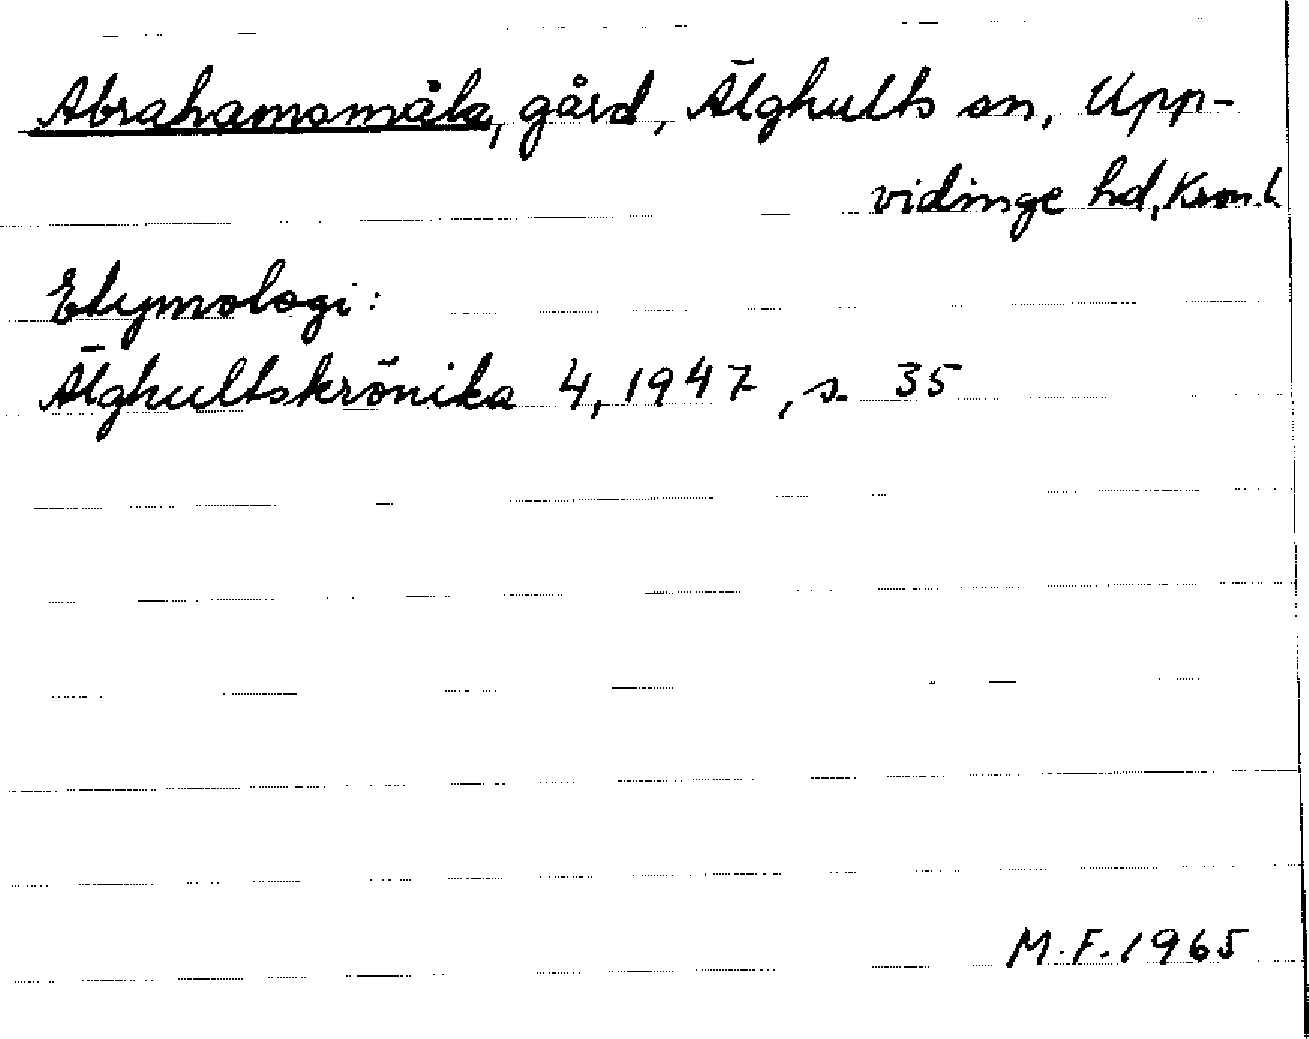 Abrahamsmåla, gård, Älghults sn, Upp-
vidinge hd, Kron. l
Etymologi:
Älghultskrönika 4, 1947, s. 35
M.F. 1965